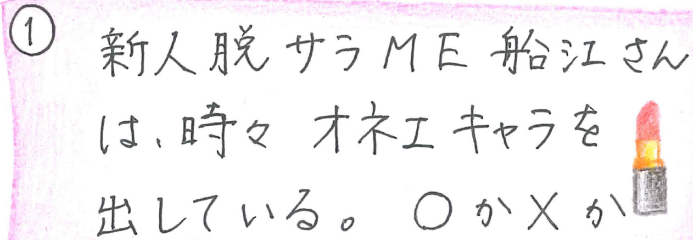 ① 新人脱サラME船江さん
は、時々 オネエキャラを
出している。 ○か×か